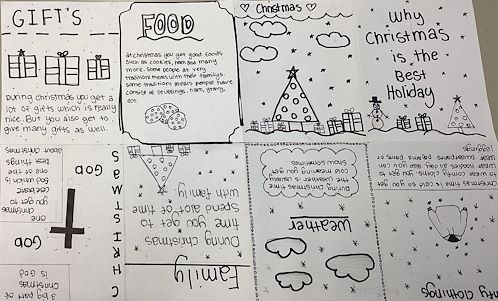 GIFT'S
During christmas you get a
lot of gifts which is really
nice. But you also get to
give many gifts as well.
FOOD
At christmas you get good foods
such as cookies, ham and many
more. some people at very
traditions meals with their family's.
some traditions meals people have
consist of stubbings, ham, gravy,
ect.
Christmas
Why
Christmas
is the
Best
Holiday
Comfy Clothings
christmas time is cold so you get
to wear comfy clothes, you get to
wear hoodies
sweatpants pajama pants or
leggings
Weather
During christmas time
the weather is usually
cold meaning you get
snow sometimes
Family
During christmas
time you get to
spend alot of time
with family.
CHRISTMAS
a big part of
christmas
is GOD
GOD
one
christmas
you get to
GOD
God which is
one of the
best things
about christmas